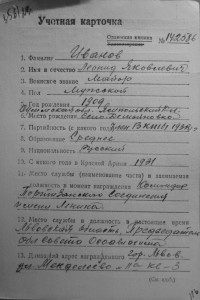 Учетная карточка
Орденская книжка № 142536
1. Фамилия Иванов
2. Имя и отчество Леонид Яковлевич
3. Воинское звание Майор
4. Пол Мужской
5. Год рождения 1909
6. Место рождения
7. Партийность (с какого года) член ВКП(б)
8. Образование Среднее
9. Национальность Русский
10. С какого года в Красной Армии 1931
11. Место службы (наименование части) и занимаемая
должность в момент награждения Командир
Партизанского Соединения
имени Ленина
12. Место службы и должность в настоящее время
Львовская область, Председатель
областного Осоавиахима
13. Домашний адрес награжденного гор. Львов
ул.
(См. на об.)